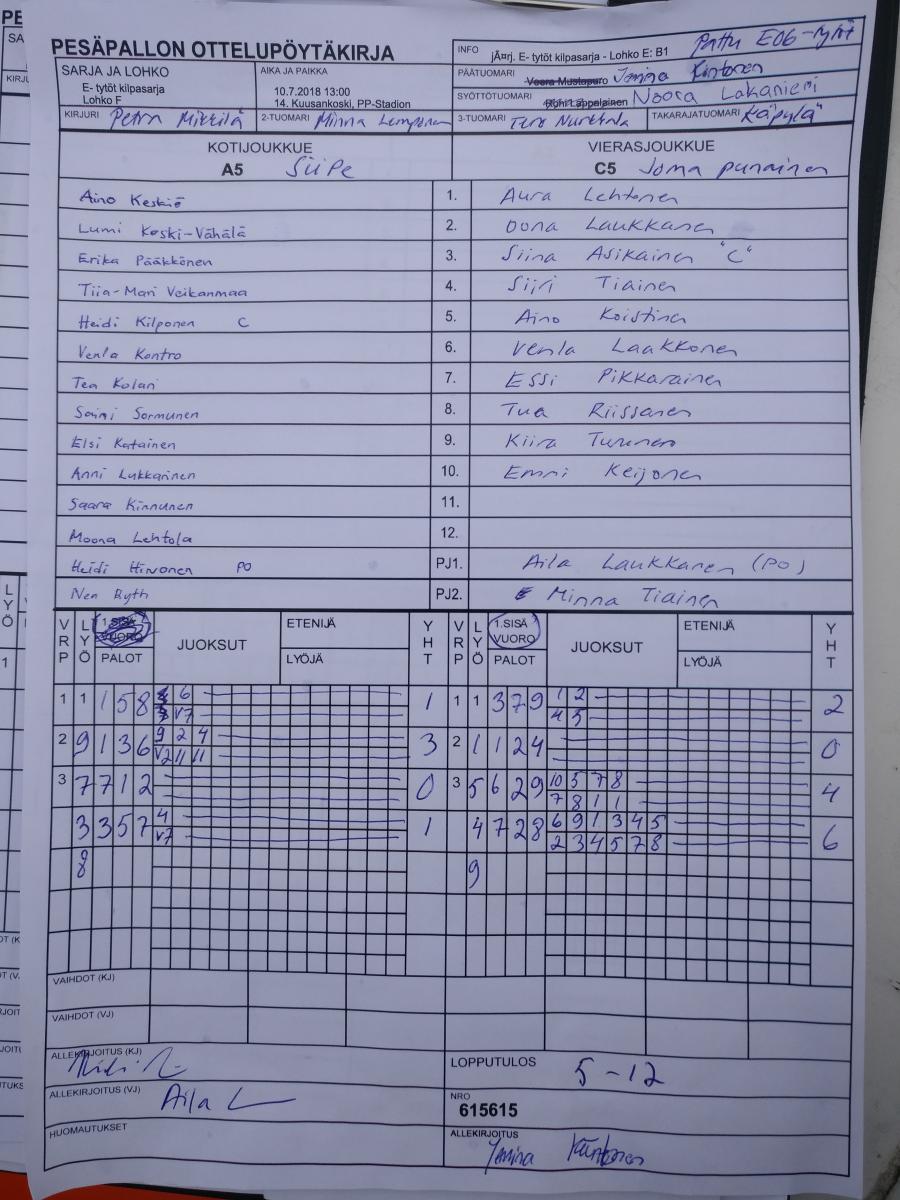 PESÄPALLON OTTELUPÖYTÄKIRJA
INFO jÃ¤rj. E- tytöt kilpasarja - Lohko E: B1 Pattu E06-
SARJA JA LOHKO
E- tytöt kilpasarja
Lohko F
AIKA JA PAIKKA
10.7.2018 13:00
14. Kuusankoski, PP-Stadion
PÄÄTUOMARI Veera Mustapuro Jenina Kintonen
SYÖTTÖTUOMARI Lappalainen Noora Lakaniemi
KIRJURI Petra Mikkilä
2-TUOMARI Minna Lemponen
3-TUOMARI Turo Nurkkala
TAKARAJATUOMARI "Käpylä"
KOTIJOUKKUE
A5 SiiPe
VIERASJOUKKUE
C5 Joma punainen
Aino Keskiö 1. Aura Lehtonen
Lumi Koski-Vähälä 2. Oona Laukkanen
Erika Pääkkönen 3. Siina Asikainen "C"
Tiia-Mari Veikanmaa 4. Siiri Tiainen
Heidi Kilponen C 5. Aino Koistinen
Venla Kontro 6. Venla Laakkonen
Tea Kolari 7. Essi Pikkarainen
Saini Sormunen 8. Tua Riissanen
Elsi Katainen 9. Kiira Turunen
Anni Lukkarinen 10. Emmi Keijonen
Saara Kinnunen 11.
Moona Lehtola 12.
Heidi Hirvonen PO PJ1. Aila Laukkanen (PO)
Nea Ryth PJ2. Minna Tiainen
VRP LYÖ 1.SISÄ VUORO PALOT JUOKSUT ETENIJÄ LYÖJÄ YHT VRP LYÖ 1.SISÄ VUORO PALOT JUOKSUT ETENIJÄ LYÖJÄ YHT
1 1 158 6 1 1 1 379 1 2 2
V7 4 5
2 9 136 9 2 4 3 2 1 124 0
V2 11 11
3 7 712 0 3 5 629 10 5 7 8 4
7 8 1 1
3 357 4 1 4 728 6 9 1 3 4 5 6
V7 2 3 4 5 7 8
8 9
VAIHDOT (KJ)
VAIHDOT (VJ)
ALLEKIRJOITUS (KJ)
LOPPUTULOS 5-12
ALLEKIRJOITUS (VJ) Aila L
NRO
615615
HUOMAUTUKSET
ALLEKIRJOITUS Jenina Kintonen